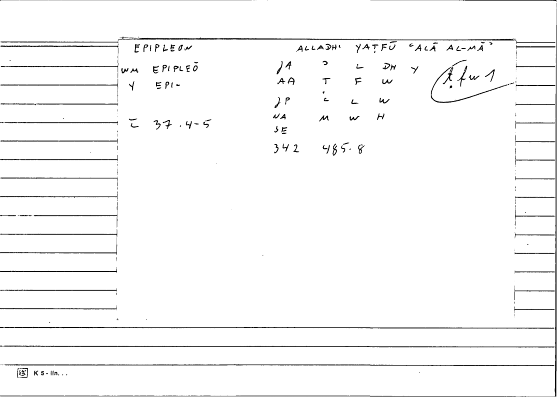 EPIPLEON ALLADHI YAṬFŪ ʿALĀ AL-MĀʾ
WM EPIPLEŌ JA ʾ L DH Y ṭfw 1
Y EPI- AA Ṭ F W
JP ʿ L W
37.4-5 NA M W H
SE
342 485.8
K S - IIn. . .